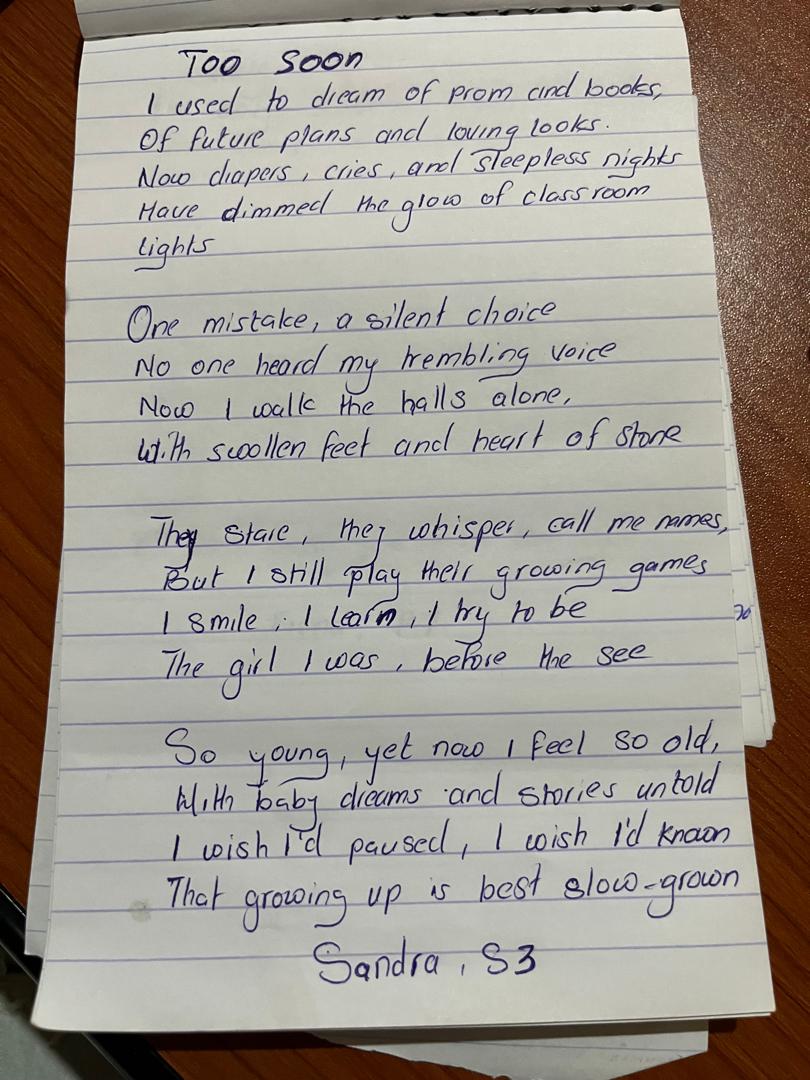 Too Soon
I used to dream of prom and books,
Of future plans and loving looks.
Now diapers, cries, and sleepless nights
Have dimmed the glow of classroom
lights
One mistake, a silent choice
No one heard my trembling voice
Now I walk the halls alone,
With swollen feet and heart of stone
They stare, they whisper, call me names,
But I still play their growing games
I smile, I learn, I try to be
The girl I was, before the see
So young, yet now I feel so old,
With baby dreams and stories untold
I wish I'd paused, I wish I'd known
That growing up is best slow-grown
Sandra, S3